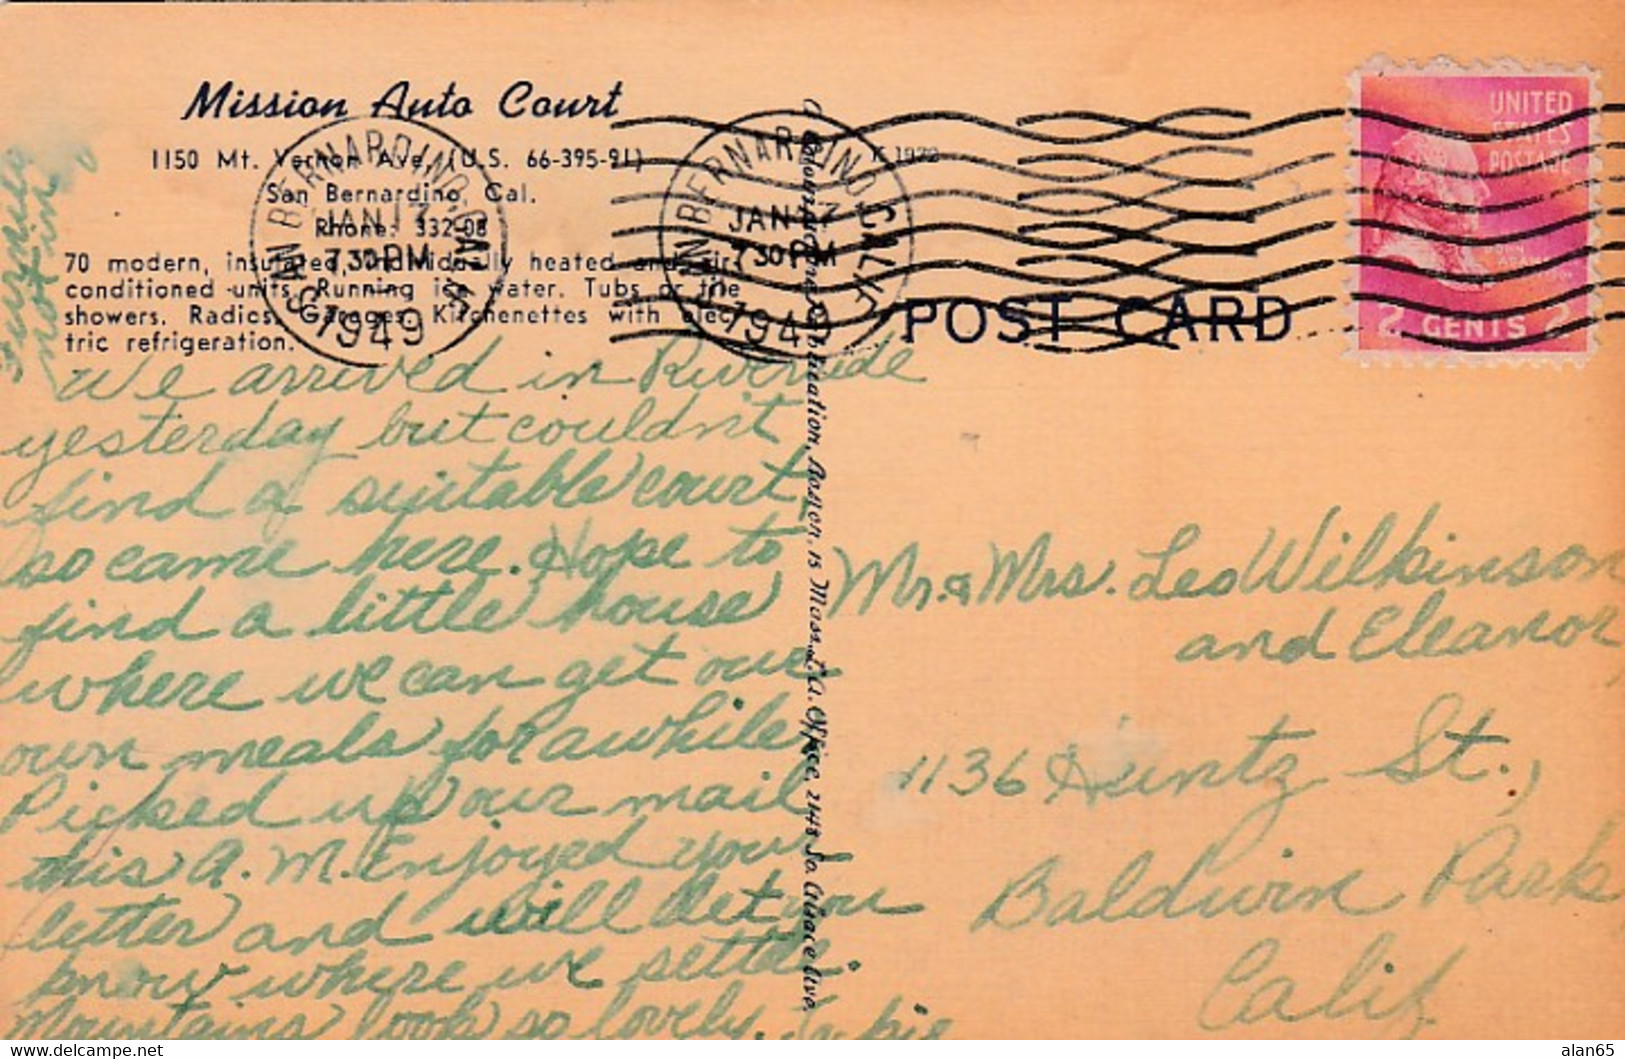 Mission Auto Court
1150 Mt. Vernon Ave. (U.S. 66-395-91)
San Bernardino, Cal.
Phone: 332-08
70 modern, insulated, individually heated and air-
conditioned units. Running ice water. Tubs or tile
showers. Radios. Garages. Kitchenettes with elec-
tric refrigeration.
SAN BERNARDINO, CALIF.
JAN 17
7 30 PM
1949
SAN BERNARDINO, CALIF.
JAN 17
7 30 PM
1949
UNITED
STATES
POSTAGE
JOHN
ADAMS
2 CENTS 2
POST CARD
not in
We arrived in Riverside
yesterday but couldn't
find a suitable court,
so came here. Hope to
find a little house
where we can get our
own meals for awhile.
Picked up our mail
this A.M. Enjoyed your
letter and will let you
know where we settle.
Mountains look so lovely.
Mr. & Mrs. Leo Wilkinson
and Eleanor
1136 Huntz St.,
Baldwin Park
Calif
Publication, Boston, 15 Mass. L.A. Office, 2148 So. Alsace Ave.
alan65